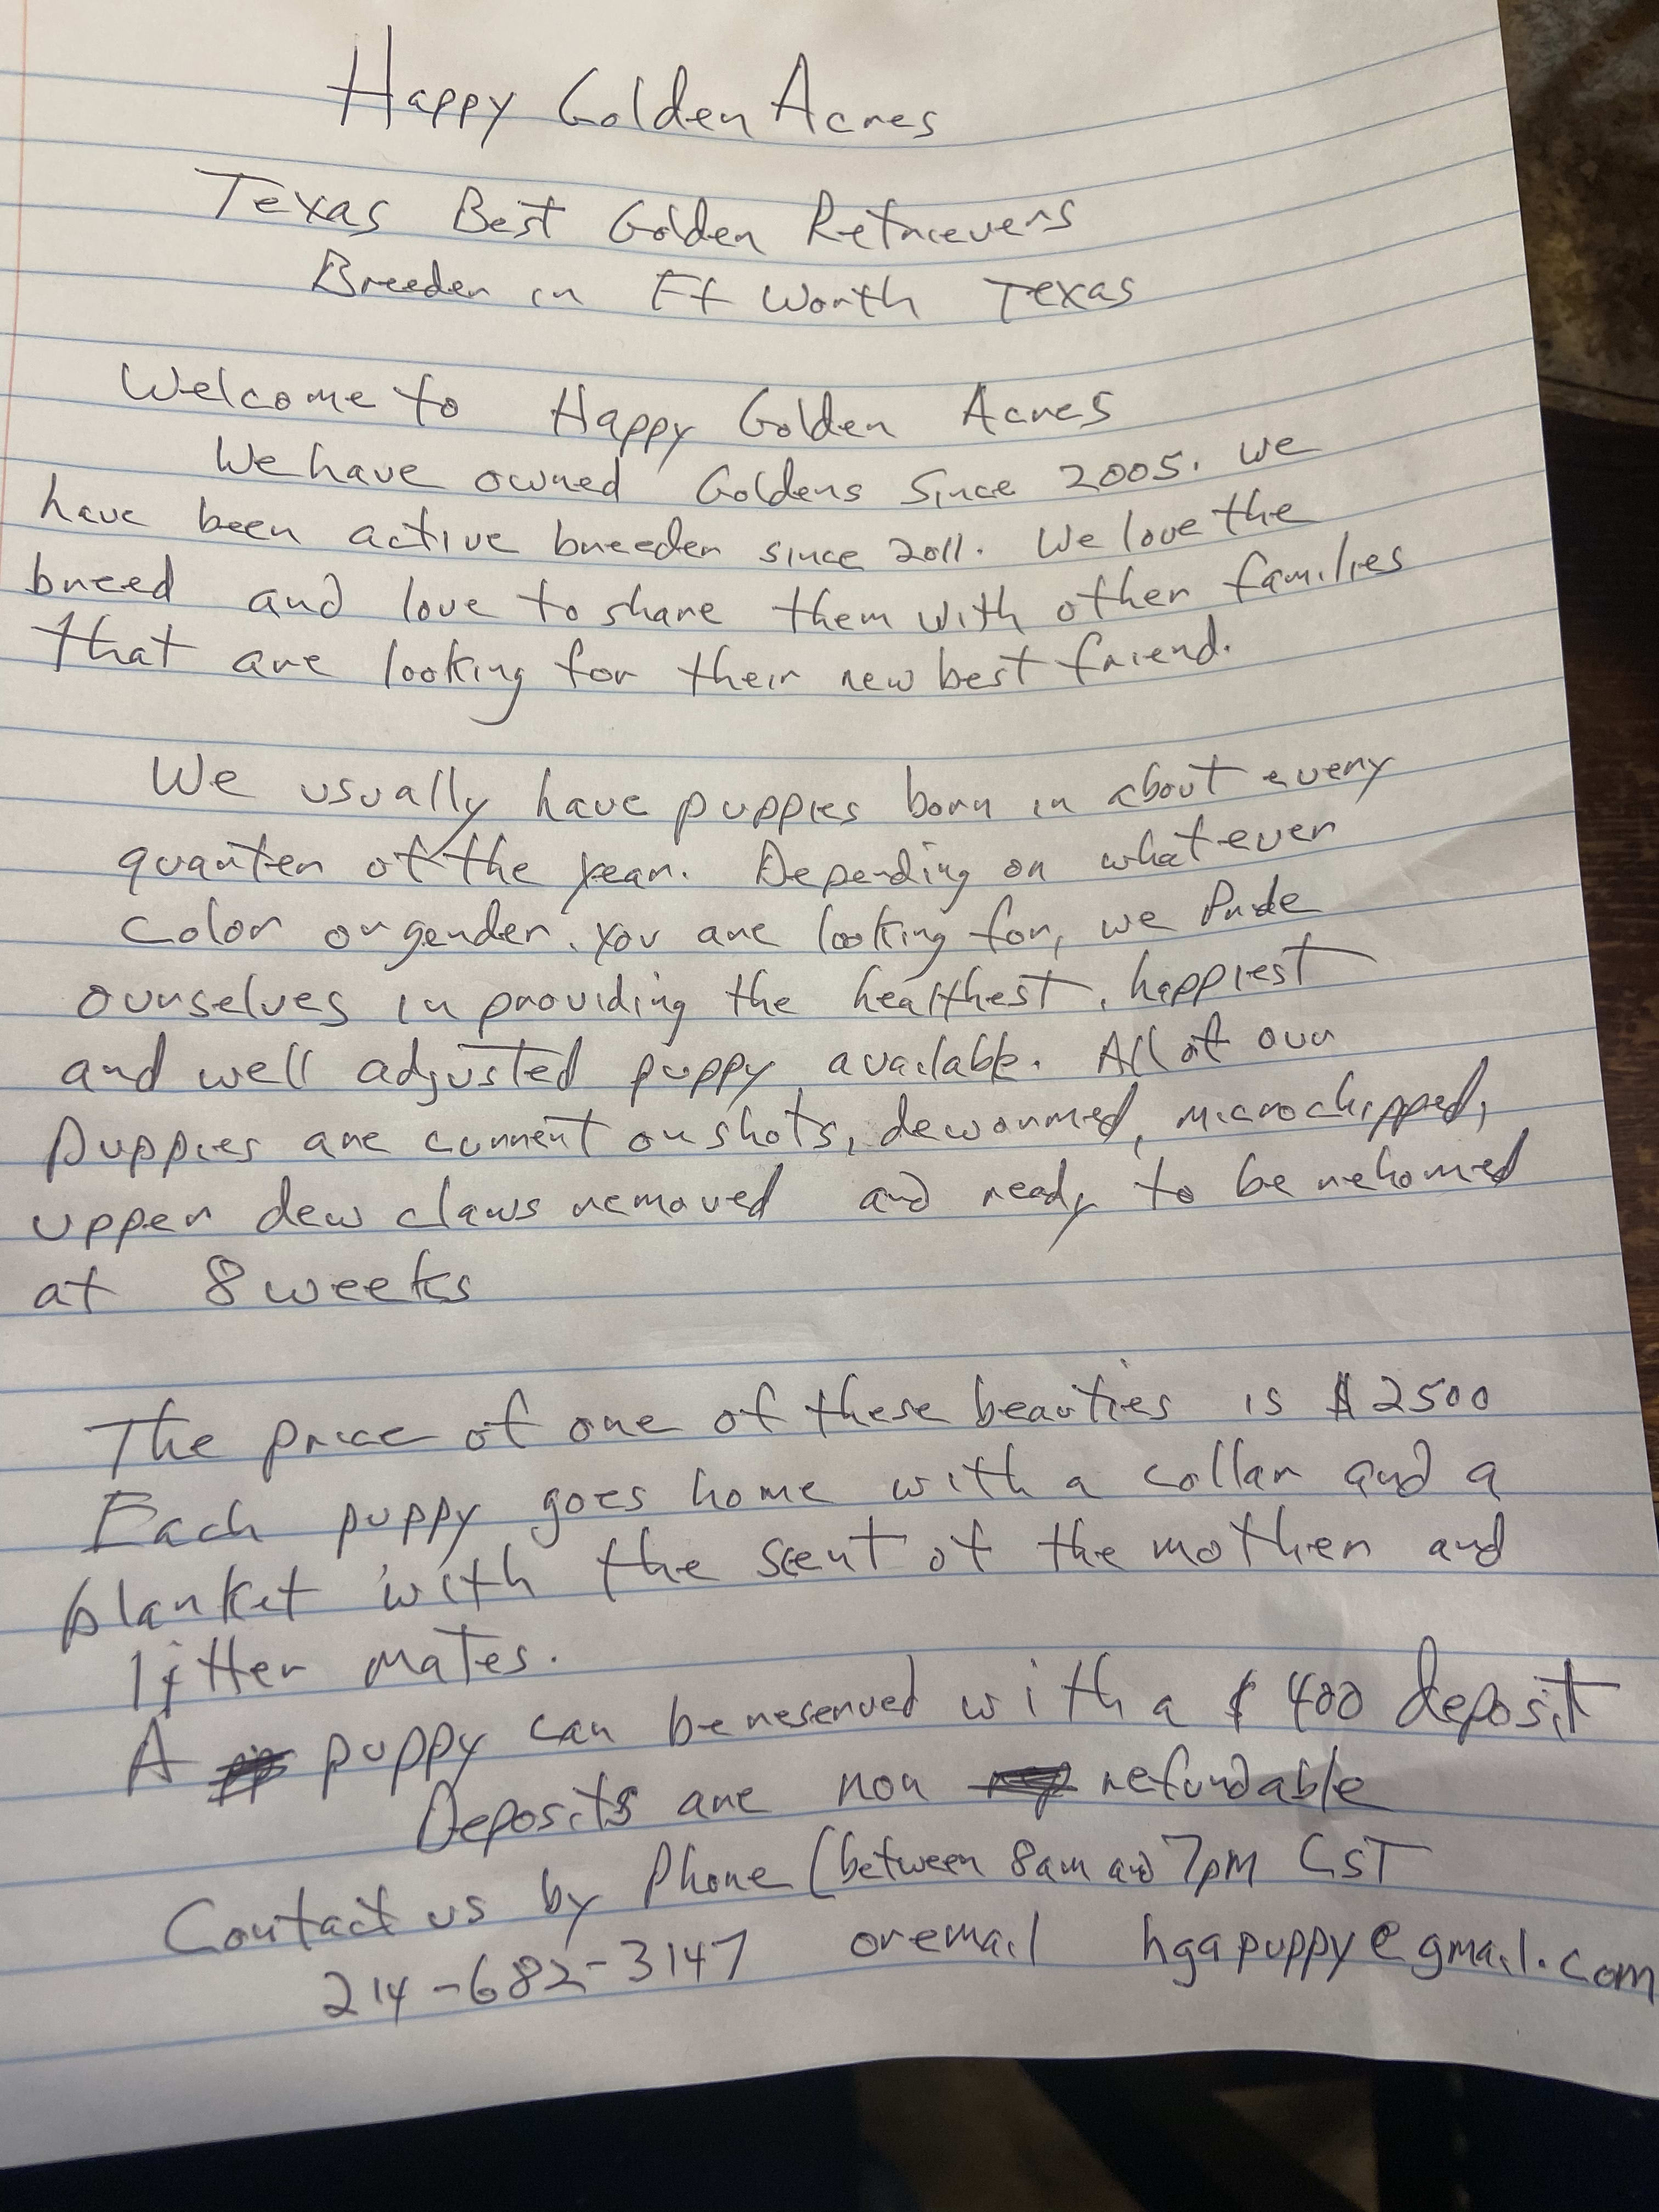 Happy Golden Acres
Texas Best Golden Retrievers
Breeder in Ft Worth Texas
Welcome to Happy Golden Acres
We have owned Goldens since 2005. we
have been active breeder since 2011. We love the
breed and love to share them with other families
that are looking for their new best friend.
We usually have puppies born in about every
quarter of the year. Depending on whatever
color or gender. you are looking for, we Pride
ourselves in providing the healthest, happiest
and well adjusted puppy available. All of our
puppies are current on shots, dewormed, microchipped,
upper dew claws removed and ready to be rehomed
at 8 weeks
The price of one of these beauties is $2500
Each puppy goes home with a collar and a
blanket with the scent of the mother and
litter mates.
A puppy can be reserved with a $400 deposit
Deposits are non refundable
Contact us by Phone (between 8am and 7pm CST
214-682-3147 or email hgapuppy@gmail.com